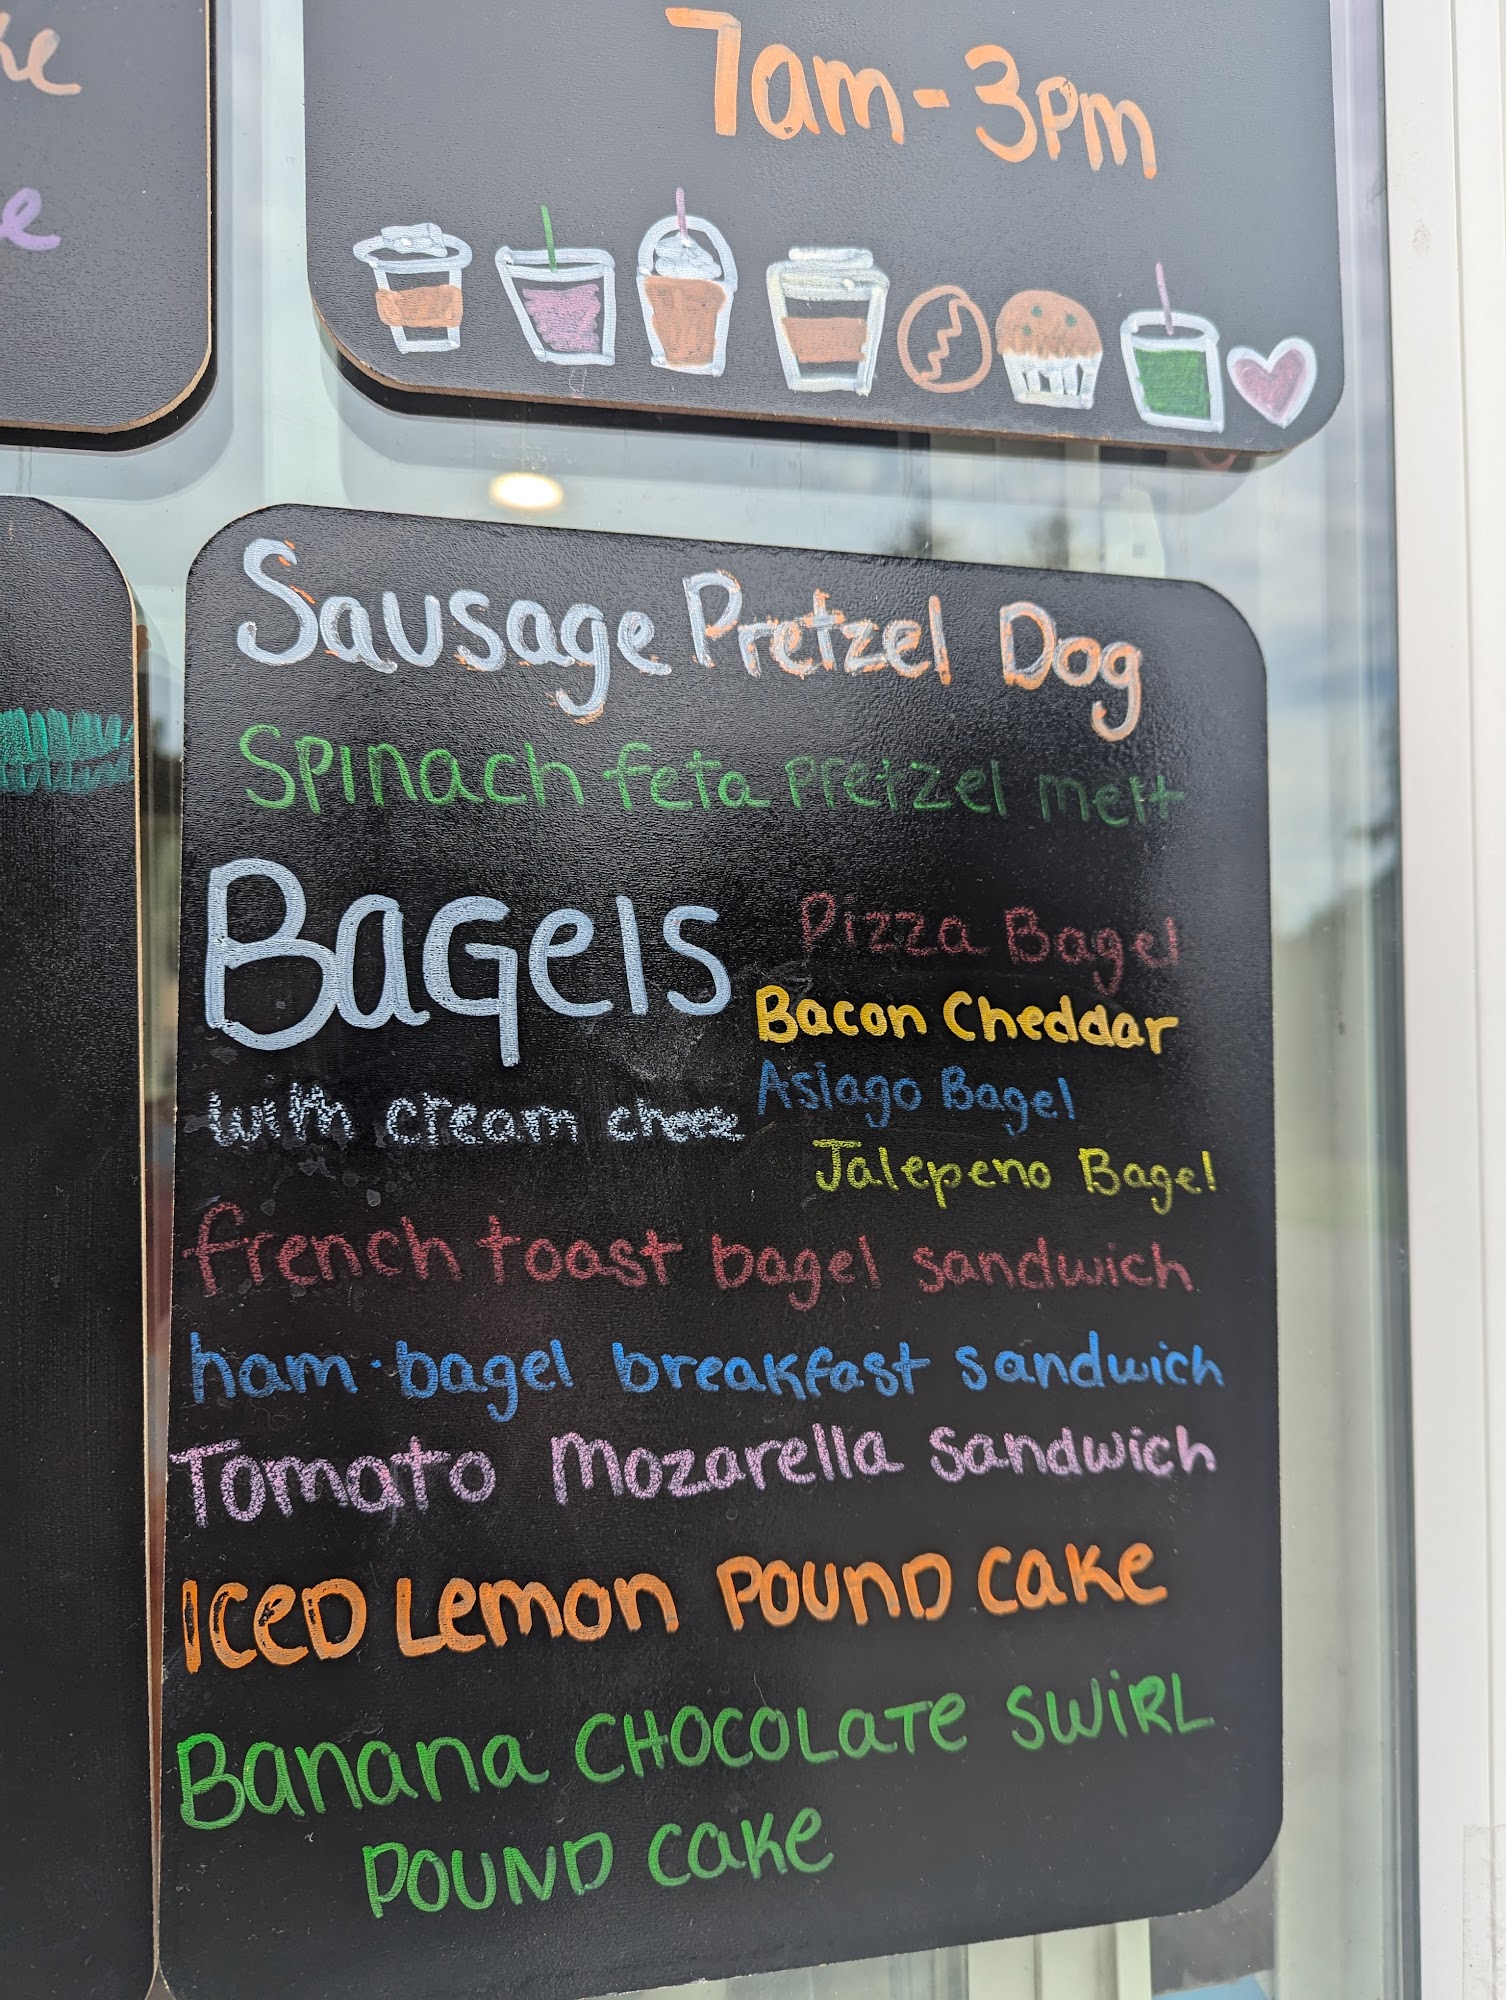 7am-3pm
Sausage Pretzel Dog
Spinach feta pretzel melt
Bagels
with cream cheese
Pizza Bagel
Bacon Cheddar
Asiago Bagel
Jalepeno Bagel
french toast bagel sandwich
ham·bagel breakfast sandwich
Tomato Mozarella Sandwich
ICeD Lemon POUND Cake
Banana CHOCOLaTe SWiRL
POUND Cake